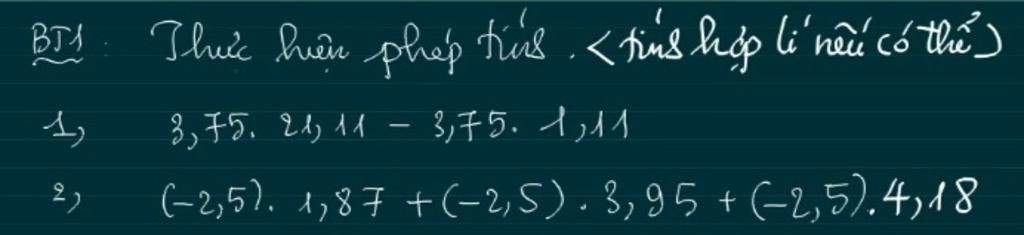 BT1: Thực hiện phép tính. <tính hợp lí nếu có thể>
1, 3,75. 21,11 - 3,75. 1,11
2, (-2,5). 1,87 + (-2,5). 3,95 + (-2,5).4,18